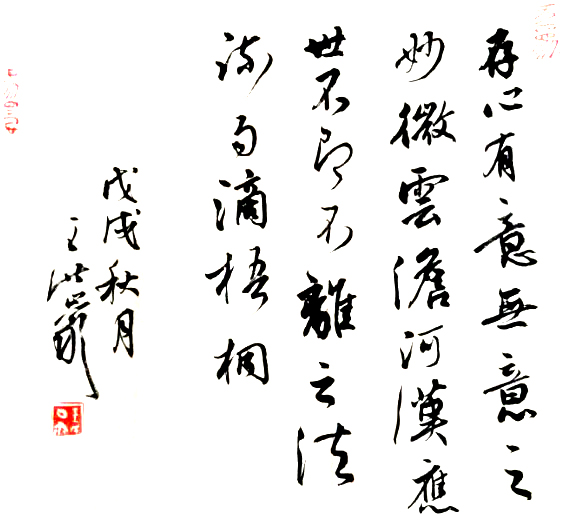 存心有意無意之
妙微雲澹河漢應
世不即不離之法
疏雨滴梧桐
戊戌秋月
王洪